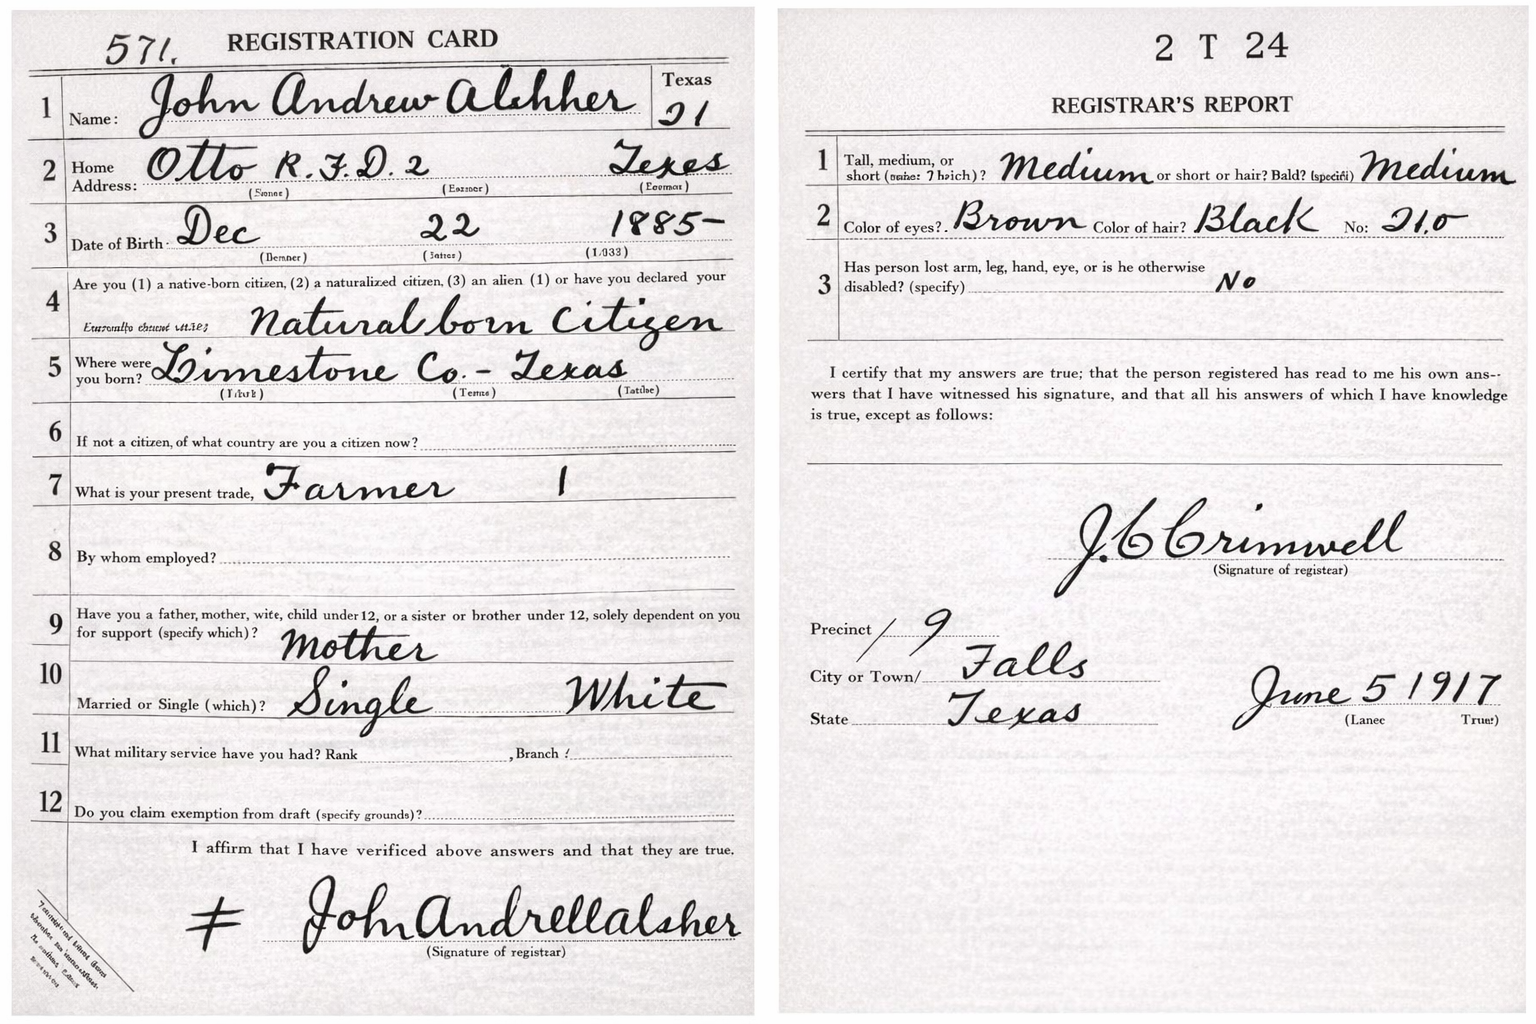 571. REGISTRATION CARD
1 Name: John Andrew Alshher Texas 21
2 Home Address: Otto R.F.D. 2 Texes
3 Date of Birth: Dec 22 1885-
4 Are you (1) a native-born citizen, (2) a naturalized citizen, (3) an alien (1) or have you declared your
Natural born Citizen
5 Where were you born? Limestone Co. - Texas
6 If not a citizen, of what country are you a citizen now?
7 What is your present trade, Farmer 1
8 By whom employed?
9 Have you a father, mother, wife, child under 12, or a sister or brother under 12, solely dependent on you
for support (specify which)? Mother
10 Married or Single (which)? Single White
11 What military service have you had? Rank , Branch
12 Do you claim exemption from draft (specify grounds)?
I affirm that I have verificed above answers and that they are true.
John Andrellalsher
(Signature of registrar)
2 T 24
REGISTRAR'S REPORT
1 Tall, medium, or
short Medium or short or hair? Bald? (specifi) Medium
2 Color of eyes?. Brown Color of hair? Black No: 21.0
3 Has person lost arm, leg, hand, eye, or is he otherwise
disabled? (specify) No
I certify that my answers are true; that the person registered has read to me his own ans--
wers that I have witnessed his signature, and that all his answers of which I have knowledge
is true, except as follows:
J. C Crimwell
(Signature of registrar)
Precinct / 9
City or Town/ Falls
State Texas June 5 1917